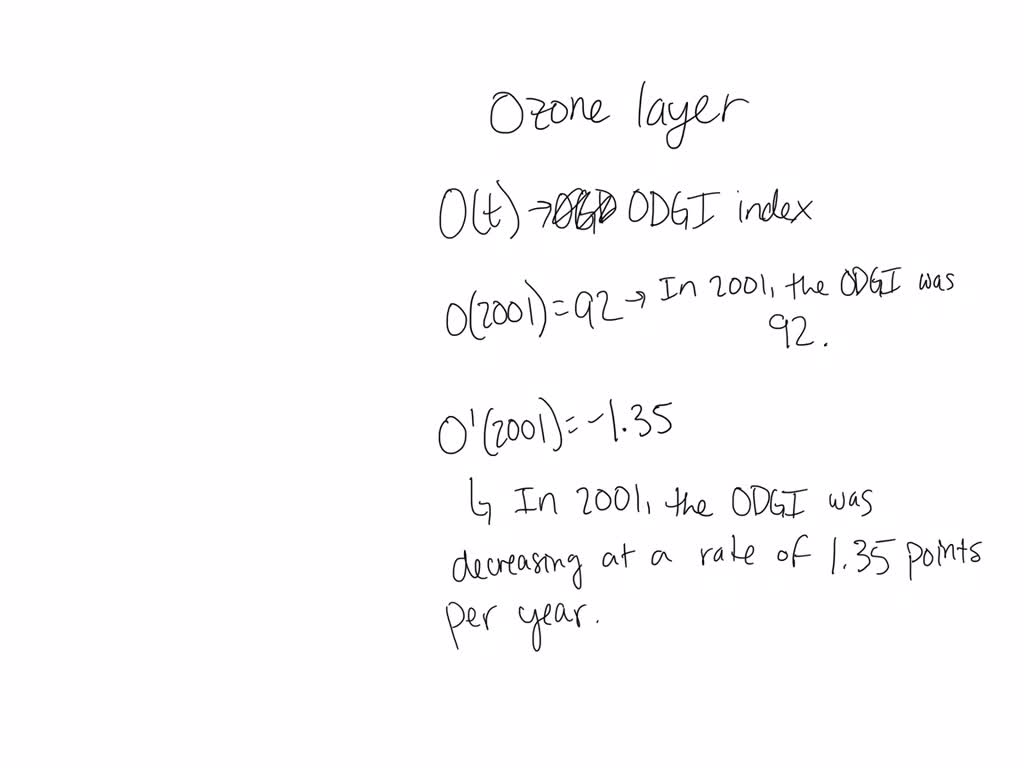 Ozone layer
O(t) → ODGI index
O(2001) = 92 → In 2001, the ODGI was
92.
O'(2001) = -1.35
↳ In 2001, the ODGI was
decreasing at a rate of 1.35 points
per year.